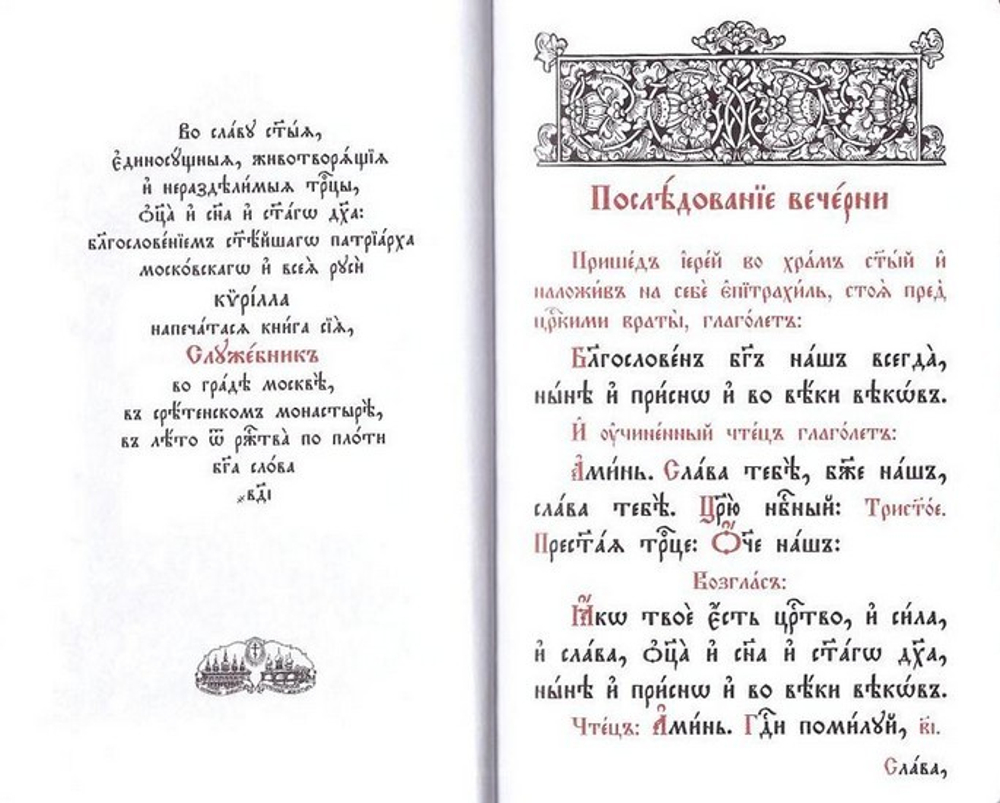 Во сла́вꙋ ст҃ы́ѧ,
є҆диносꙋ́щныѧ, животворѧ́щїѧ
и҆ нераздѣ́лимыѧ трⷪ҇цы,
ѻ҆ц҃а̀ и҆ сн҃а и҆ ст҃а́гѡ дх҃а:
бл҃гослове́нїемъ ст҃ѣ́йшагѡ патрїа́рха
моско́вскагѡ и҆ всеѧ̀ рꙋсѝ
кѷрі́лла
напеча́тасѧ кни́га сїѧ̀,
Слꙋже́бникъ
во гра́дѣ москвѣ̀,
въ срѣ́тенскомъ монастырѣ̀,
въ лѣ́то ѿ ржⷭ҇тва̀ по пло́ти
бг҃а сло́ва
҂вд҃і
Послѣ́дованїе вече́рни
Прише́дъ і҆ере́й во хра́мъ ст҃ы́й и҆
наложи́въ на себѐ є҆пїтрахи́ль, стоѧ̀ пред̾
црⷭ҇кими враты̀, глаго́летъ:
Бл҃гослове́нъ бг҃ъ на́шъ всегда̀,
ны́нѣ и҆ при́снѡ и҆ во вѣ́ки вѣкѡ́въ.
И҆ ᲂу҆чине́нный чте́цъ глаго́летъ:
А҆ми́нь. Сла́ва тебѣ̀, бж҃е на́шъ,
сла́ва тебѣ̀. Цр҃ю̀ нбⷭ҇ный: Трист҃о́е.
Прест҃а́ѧ трⷪ҇це: Ѻ҆́ч҃е на́шъ:
Во́згласъ:
Ꙗ҆́кѡ твоѐ є҆́сть црⷭ҇тво, и҆ си́ла,
и҆ сла́ва, ѻ҆ц҃а̀ и҆ сн҃а и҆ ст҃а́гѡ дх҃а,
ны́нѣ и҆ при́снѡ и҆ во вѣ́ки вѣкѡ́въ.
Чте́цъ: А҆ми́нь. Гдⷭ҇и поми́лꙋй, в҃і.
Сла́ва,